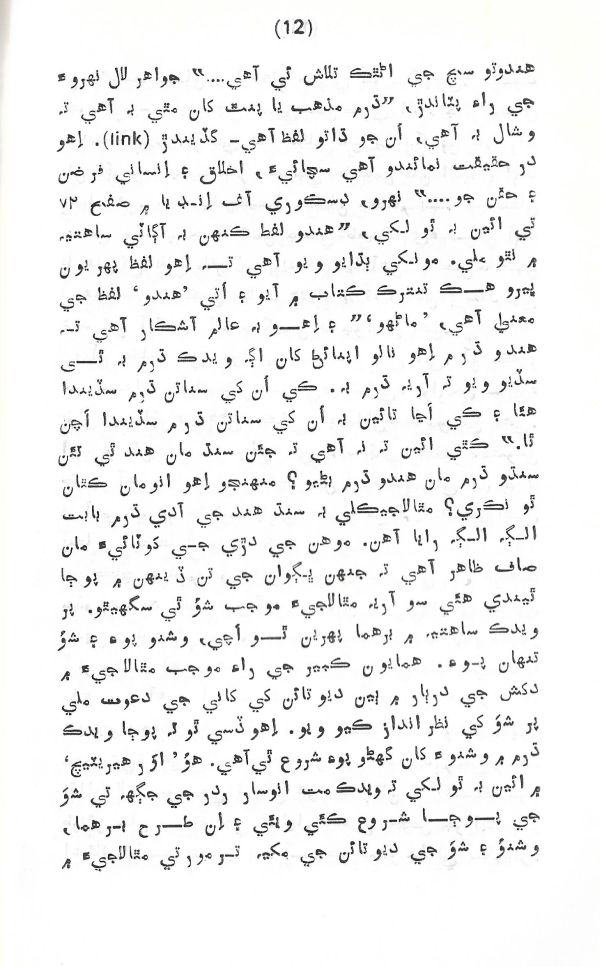 (12)
هندوتو سچ جي اڻٿڪ تلاش ئي آهي....“ جواهر لال نهروءَ
جي راءِ پٽاندڙ، ”ڌرم مذهب يا پنٿ کان مٿي به آهي ته
وشال به آهي، اُن جو ڌاتو لفظ آهي- ڳنڍيندڙ (link). اِهو
در حقيقت نمائندو آهي سچائيءَ، اخلاق ۽ اِنساني فرضن
۽ حقن جو....“ نهرو، ڊسڪوري آف اِنڊيا ۾ صفحي ٧٢
تي ائين به ٿو لکي، ”هندو لفظ ڪنهن به آڳاٽي ساهتيه
۾ نٿو ملي. مونکي ٻڌايو ويو آهي تـه اِهو لفظ پهريون
ڀيرو هـڪ تنترڪ ڪتاب ۾ آيو ۽ اُتي ’هندو‘ لفظ جي
معنيٰ آهي، ’ماڻهو‘“ ۽ اِهـو به عالم آشڪار آهي تـه
هندو ڌرم اِهو نالو اپنائڻ کان اڳ ويدڪ ڌرم به ٿـي
سڏيو ويو ته آريه ڌرم به. ڪي اُن کي سناتن ڌرم سڏيندا
هئا ۽ ڪي اڃا تائين به اُن کي سناتن ڌرم سڏيندا اچن
ٿا.“ ڪٿي ائين ته نه آهي ته جئن سنڌ مان هند ٿي تئن
سنڌو ڌرم مان هندو ڌرم بڻيو؟ منهنجو اِهو انومان ڪٿان
ٿو نڪري؟ مٿالاجيڪلي به سنڌ هند جي آدي ڌرم بابت
الـڳ الـڳ رايا آهن. موهن جي دڙي جـي کوٽائيءَ مان
صاف ظاهر آهي ته جنهن ڀڳوان جي تن ڏينهن ۾ پوڄا
ٿيندي هئي سو آريه مٿالاجيءَ موجب شِوُ ٿي سگهيٿو. پر
ويدڪ ساهتيه ۾ برهما پهرين ٿـو اچي، وشنو پوءِ ۽ شِوُ
تنهان پـوءِ. همايون ڪبير جي راءِ موجب مٿالاجيءَ ۾
دکش جي دربار ۾ ٻين ديوتائن کي کاني جي دعوت ملي
پر شِوَ کي نظر انداز ڪيو ويو. اِهو ڏسي ٿو ته پوڄا ويدڪ
ڌرم ۾ وشنوءَ کان گهڻو پوءِ شروع ٿي آهي. هوُ ’اَوَر هيريٽيج‘
۾ ائين به ٿو لکي ته ويدڪ مت انوسار ردر جي جڳهه تي شِوَ
جي پـوڄـا شـروع ڪئي ويئي ۽ اِن طـرح بـرهما،
وشنوُ ۽ شِوُ جي ديوتائن جي مکيه تـرمورتي مٿالاجيءَ ۾